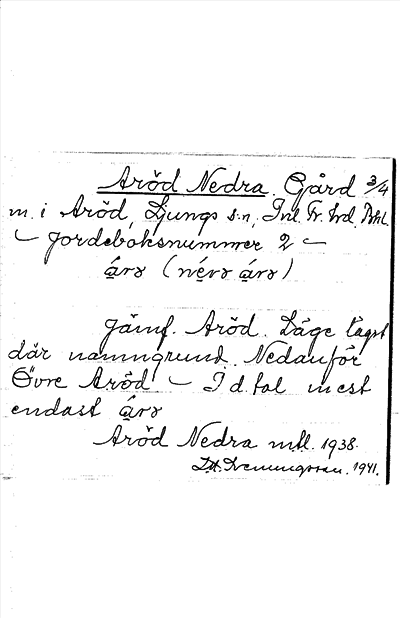 Aröd Nedra. Gård 3/4
m. i Aröd, Ljungs s:n, Inl. Fr. hd. Bhl.
— Jordeboksnummer 2 —
Jämf. Aröd. Läge lägst
där namngrund. Nedanför
Övre Aröd — I d. tal mest
endast
Aröd Nedra mtl. 1938.
1941.